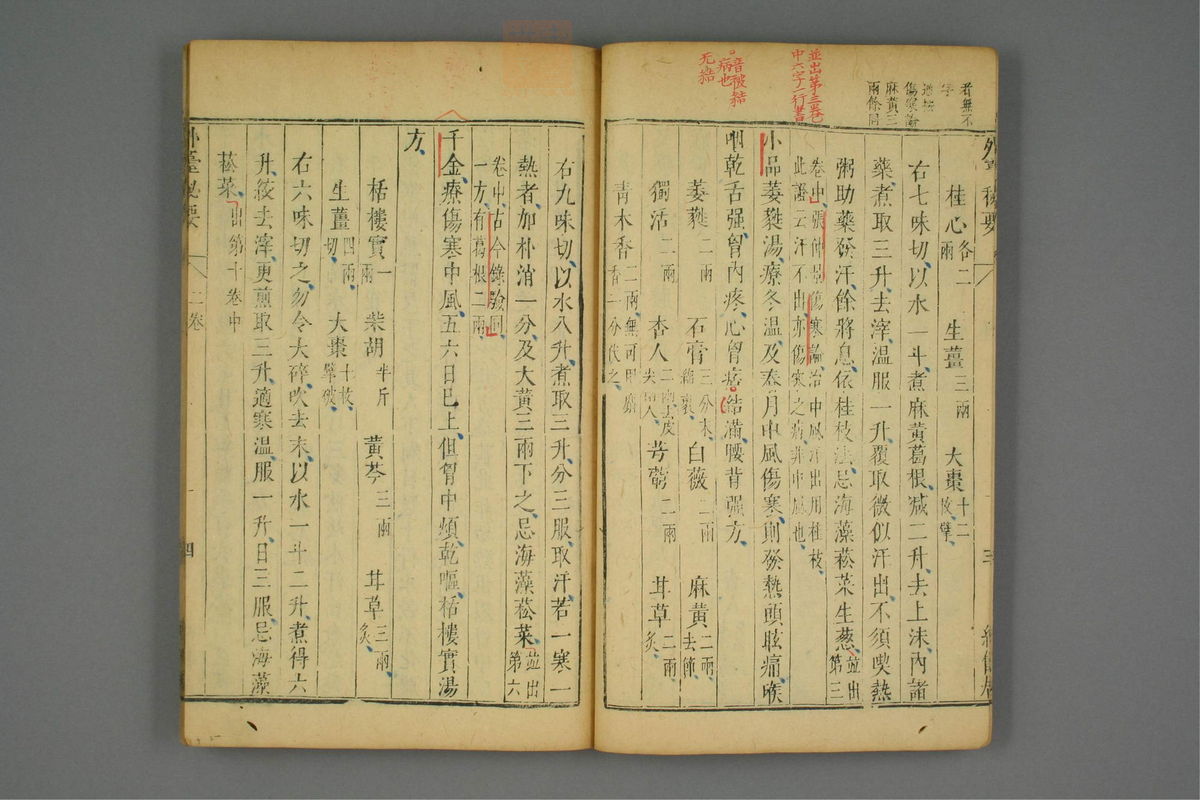 桂心各二兩 生薑三兩 大棗十二枚擘
右七味切以水一斗煮麻黃葛根減二升去上沫內諸
藥煮取三升去滓温服一升覆取微似汗出不須喫熱
粥助藥發汗餘將息依桂枝法忌海藻菘菜生葱並出第三
卷中張仲景傷寒論治中風汗出用桂枝
此證云汗不出亦傷寒之病非中風也
小品葳蕤湯療冬温及春月中風傷寒則發熱頭眩痛喉
咽乾舌强胷內疼心胷痞結滿腰背强方
葳蕤二兩 石膏三分末綿裹 白薇二兩 麻黃二兩去節
獨活二兩 杏人二兩去皮尖兩人 芎藭二兩 甘草二兩炙
青木香二兩無可用麝香一分代之
右九味切以水八升煮取三升分三服取汗若一寒一
熱者加朴消一分及大黃三兩下之忌海藻菘菜並出第六
卷中古今錄驗同
一方有葛根二兩
千金療傷寒中風五六日已上但胷中煩乾嘔栝樓實湯
方
栝樓實一兩 柴胡半斤 黃芩三兩 甘草三兩炙
生薑四兩切 大棗十枚擘破
右六味切之勿令大碎吹去末以水一斗二升煮得六
升絞去滓更煎取三升適寒温服一升日三服忌海藻
菘菜出第十卷中
外臺秘要 二卷 四
並出第三卷
中六字一行書
音被結
病也
无結
者無不
傷寒論
麻黃三
兩餘同